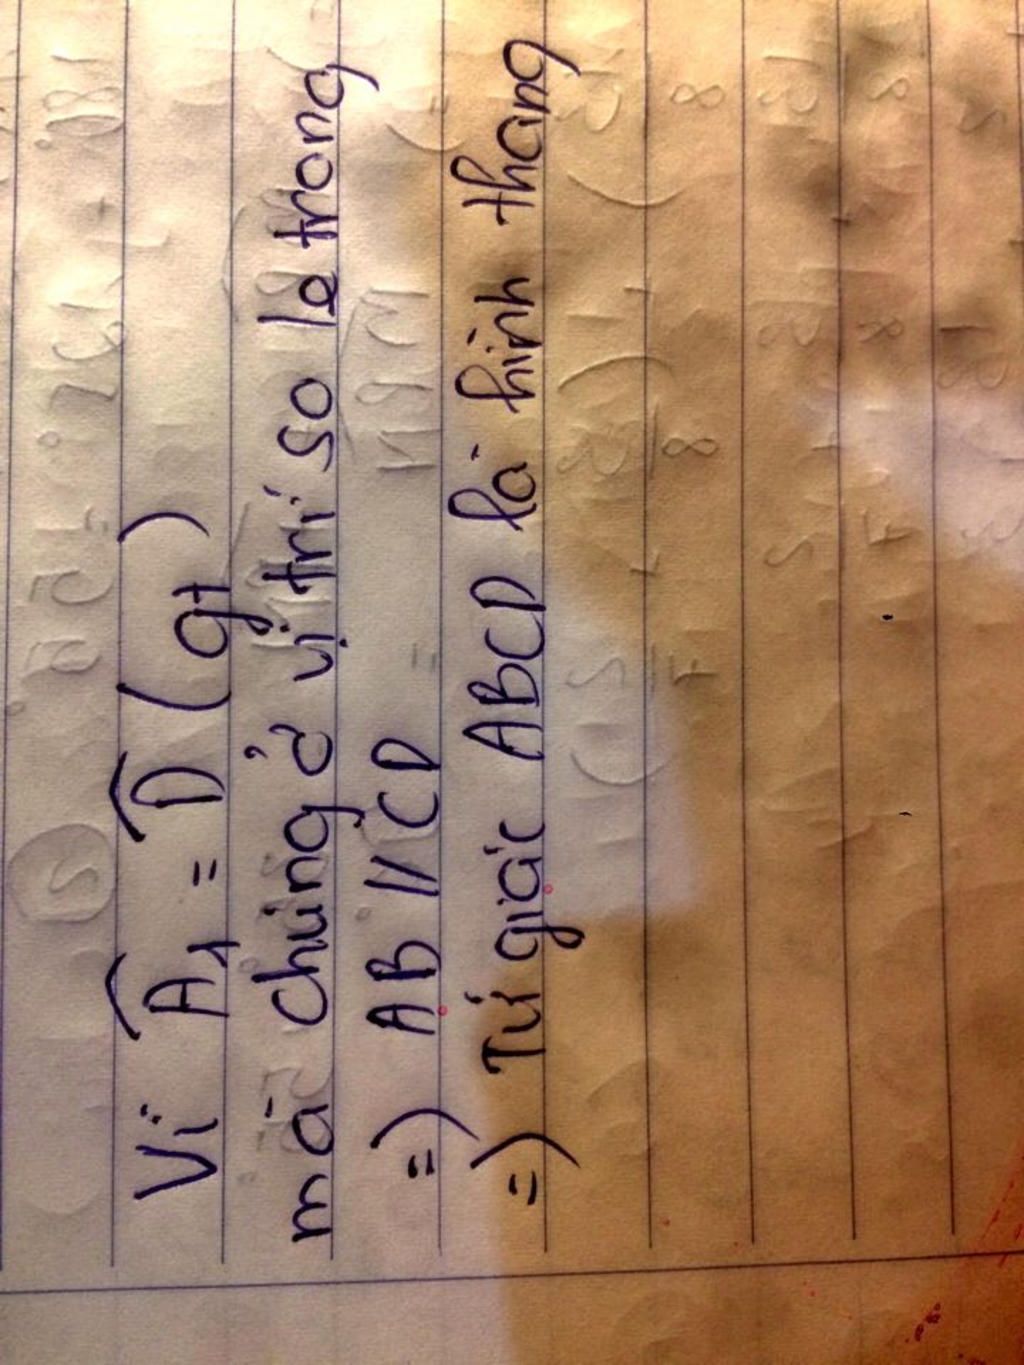 Vì Â₁ = D̂ (gt)
mà chúng ở vị trí so le trong
=) AB // CD
=) Tứ giác ABCD là hình thang